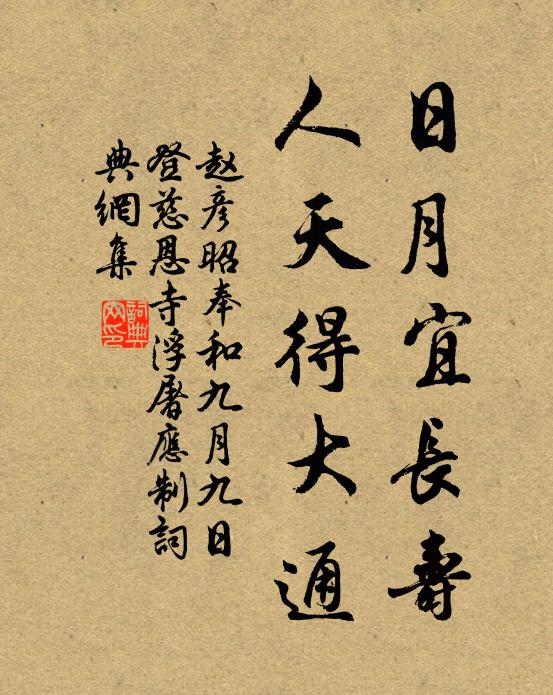 日月宜長壽
人天得大通
赵彦昭奉和九月九日
登慈恩寺浮屠應制詞
典網集
詞典網印